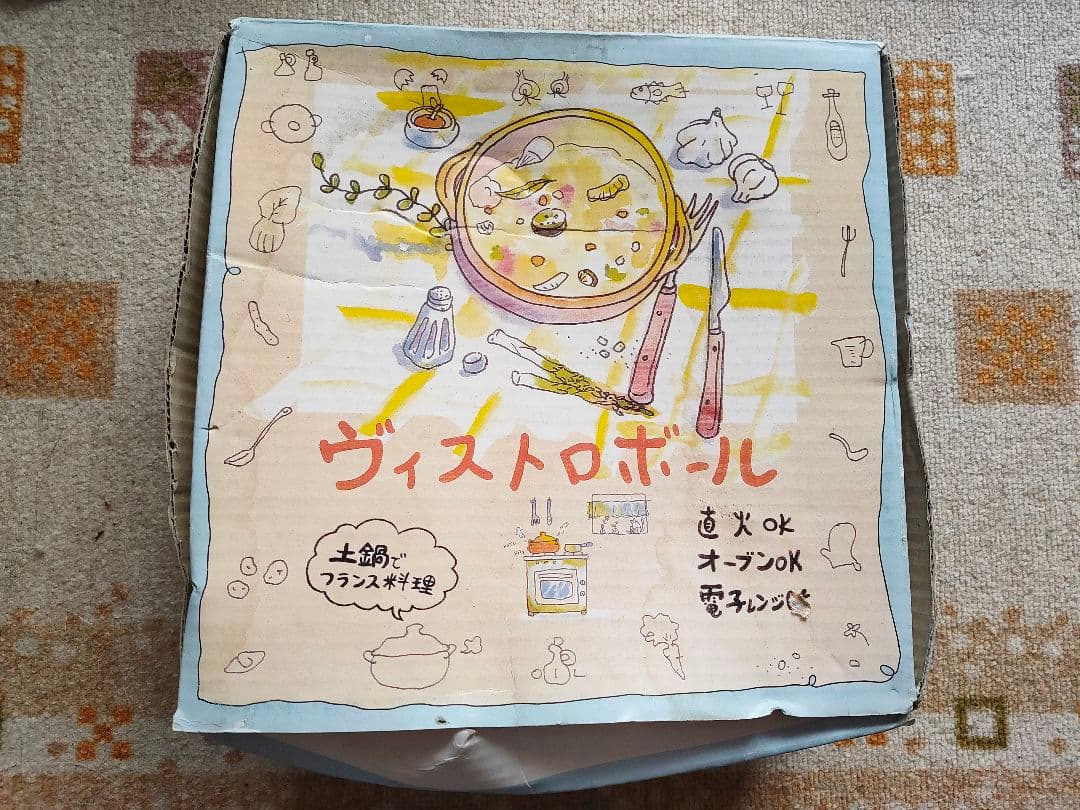 ヴィストロボール
土鍋で
フランス料理
直火OK
オーブンOK
電子レンジ